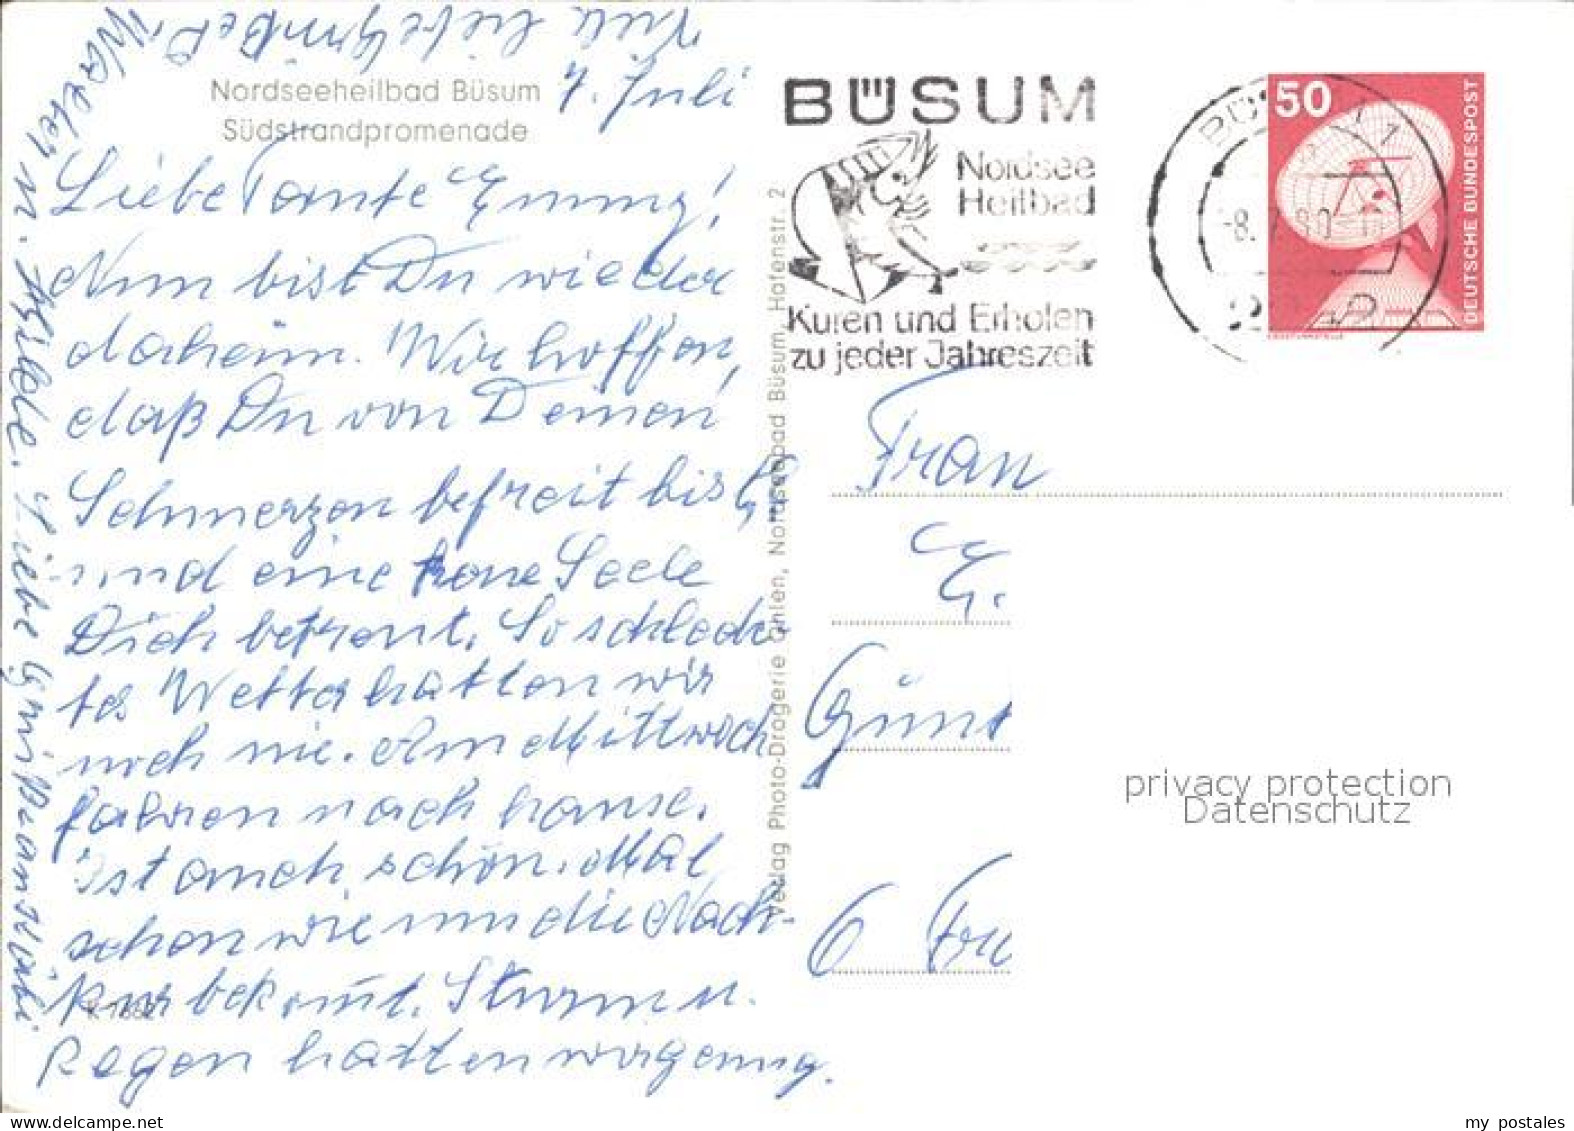 Nordseeheilbad Büsum
Südstrandpromenade
7. Juli
Liebe Tante Emmy!
Nun bist Du wieder
daheim. Wir hoffen,
daß Du von Deinen
Schmerzen befreit bist
und eine Seele
Dich betreut. So schlech-
tes Wetter hatten wir
noch nie. Am Mittwoch
fahren nach hause.
Ist auch schön. Mal
schon wie uns die Nach-
kur bekomt. Sturm u.
Regen hatten wir genug.
Viele liebe Grüße
Walter u. Hilde.
Liebe Grüße an
Verlag Photo-Drogerie Ohlen, Nordseebad Büsum, Hafenstr. 2
BÜSUM
Nordsee
Heilbad
Kuren und Erholen
zu jeder Jahreszeit
-8.7.80
50
DEUTSCHE BUNDESPOST
Frau
E.
Günt
6 Fr
privacy protection
Datenschutz
my postales
www.delcampe.net